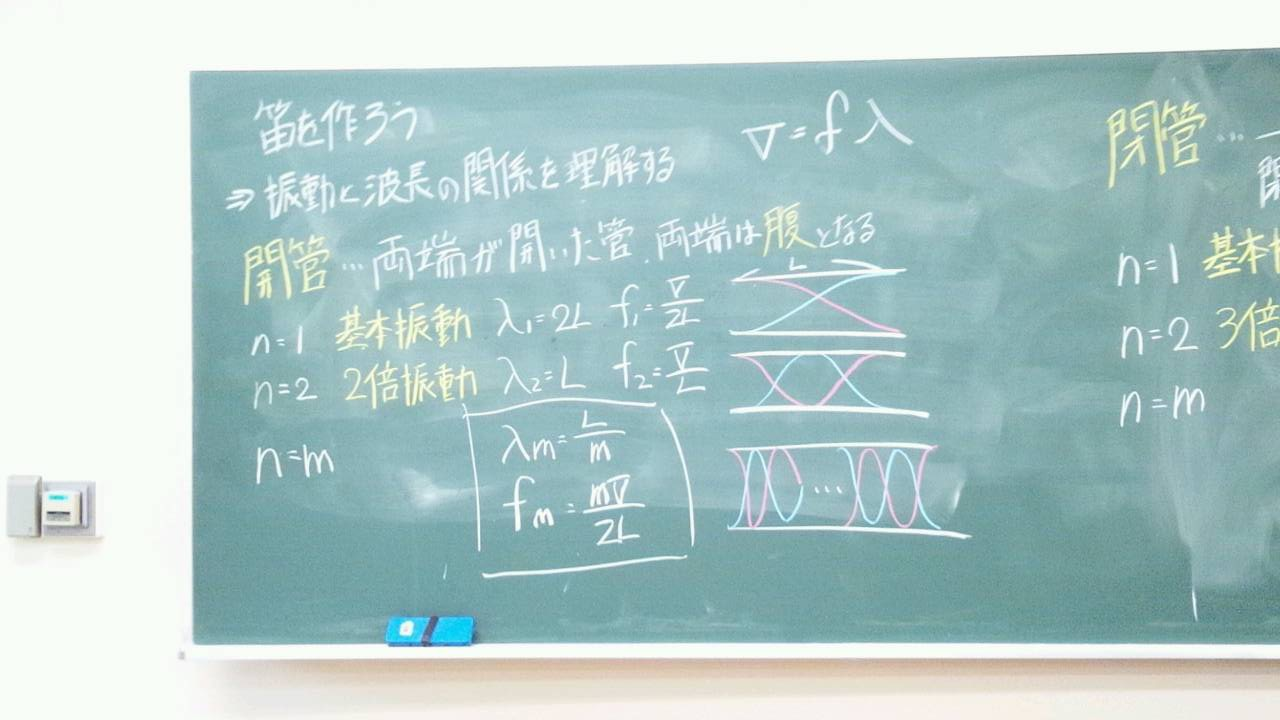 笛を作ろう
V=fλ
⇒ 振動と波長の関係を理解する
開管…両端が開いた管.両端は腹となる
L
n=1 基本振動 λ₁=2L f₁=V/2L
n=2 2倍振動 λ₂=L f₂=V/L
n=m
λm=L/m
fm=mV/2L
…
閉管…
n=1 基本
n=2 3倍
n=m